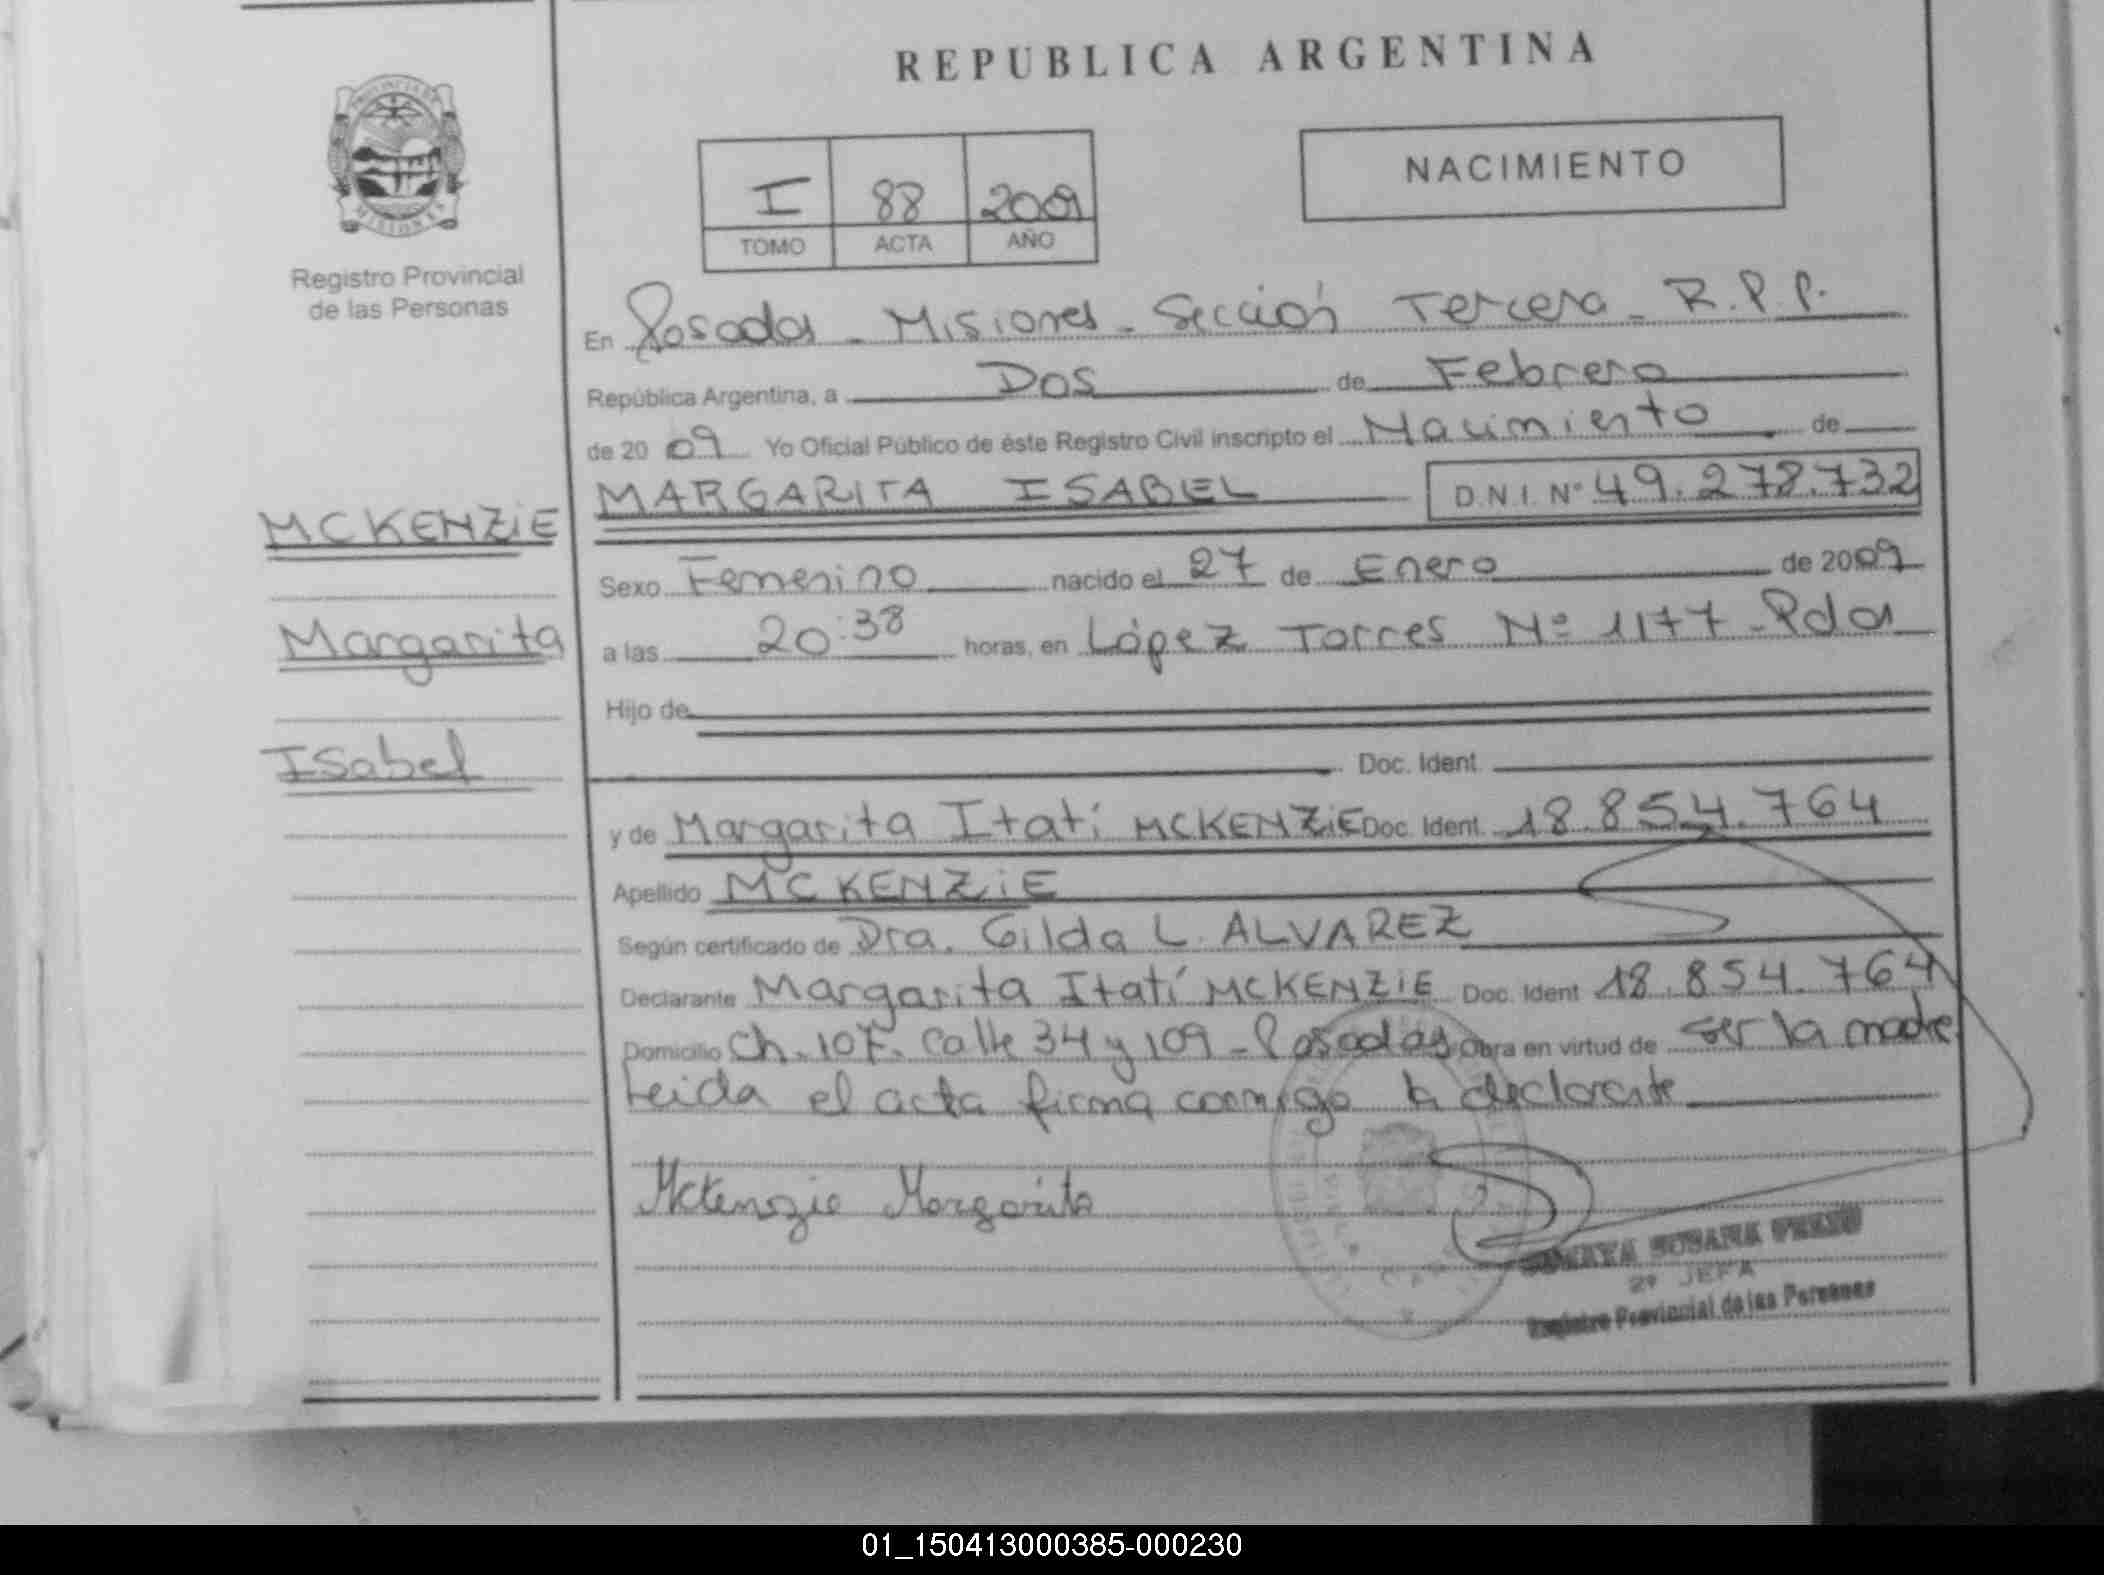 REPUBLICA ARGENTINA
PROVINCIA DE
MISIONES
Registro Provincial
de las Personas
I 88 2009
TOMO ACTA AÑO
NACIMIENTO
En Posadas - Misiones - Sección Tercera - R.P.P.
República Argentina, a Dos de Febrero
de 20 09 Yo Oficial Público de éste Registro Civil inscripto el Nacimiento de
MARGARITA ISABEL D.N.I. Nº 49.278.732
MCKENZIE
Margarita
Isabel
Sexo Femenino nacido el 27 de Enero de 2009
a las 20:38 horas, en López Torres Nº 1177 - Pdas
Hijo de
Doc. Ident.
y de Margarita Itatí MCKENZIE Doc. Ident. 18.854.764
Apellido MCKENZIE
Según certificado de Dra. Gilda L. ALVAREZ
Declarante Margarita Itatí MCKENZIE Doc. Ident 18.854.764
Domicilio Ch. 107. Calle 34 y 109 - Posadas Obra en virtud de ser la madre
Leida el acta firma conmigo la declarante
Mckenzie Margarita
SUSANA
2º JEFA
Registro Provincial de las Personas
01_150413000385-000230